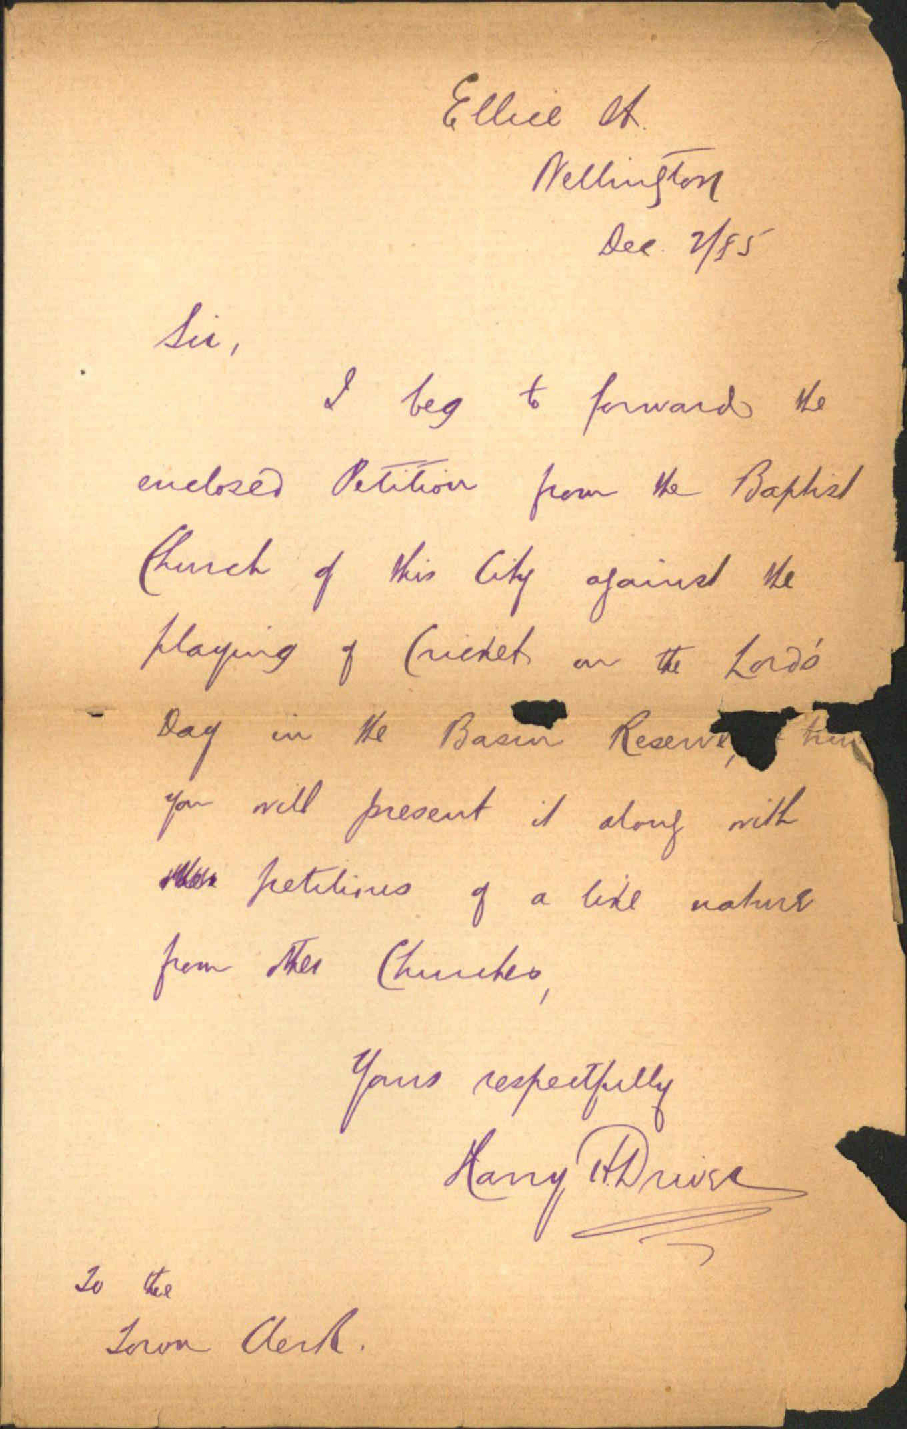 Ellice St.
Wellington
Dec 2/85
Sir,
I beg to forward the
enclosed Petition from the Baptist
Church of this City against the
playing of Cricket on the Lord's
Day in the Basin Reserve,
you will present it along with
petitions of a like nature
from other Churches,
Yours respectfully
Harry H. Driver
To the
Town Clerk.